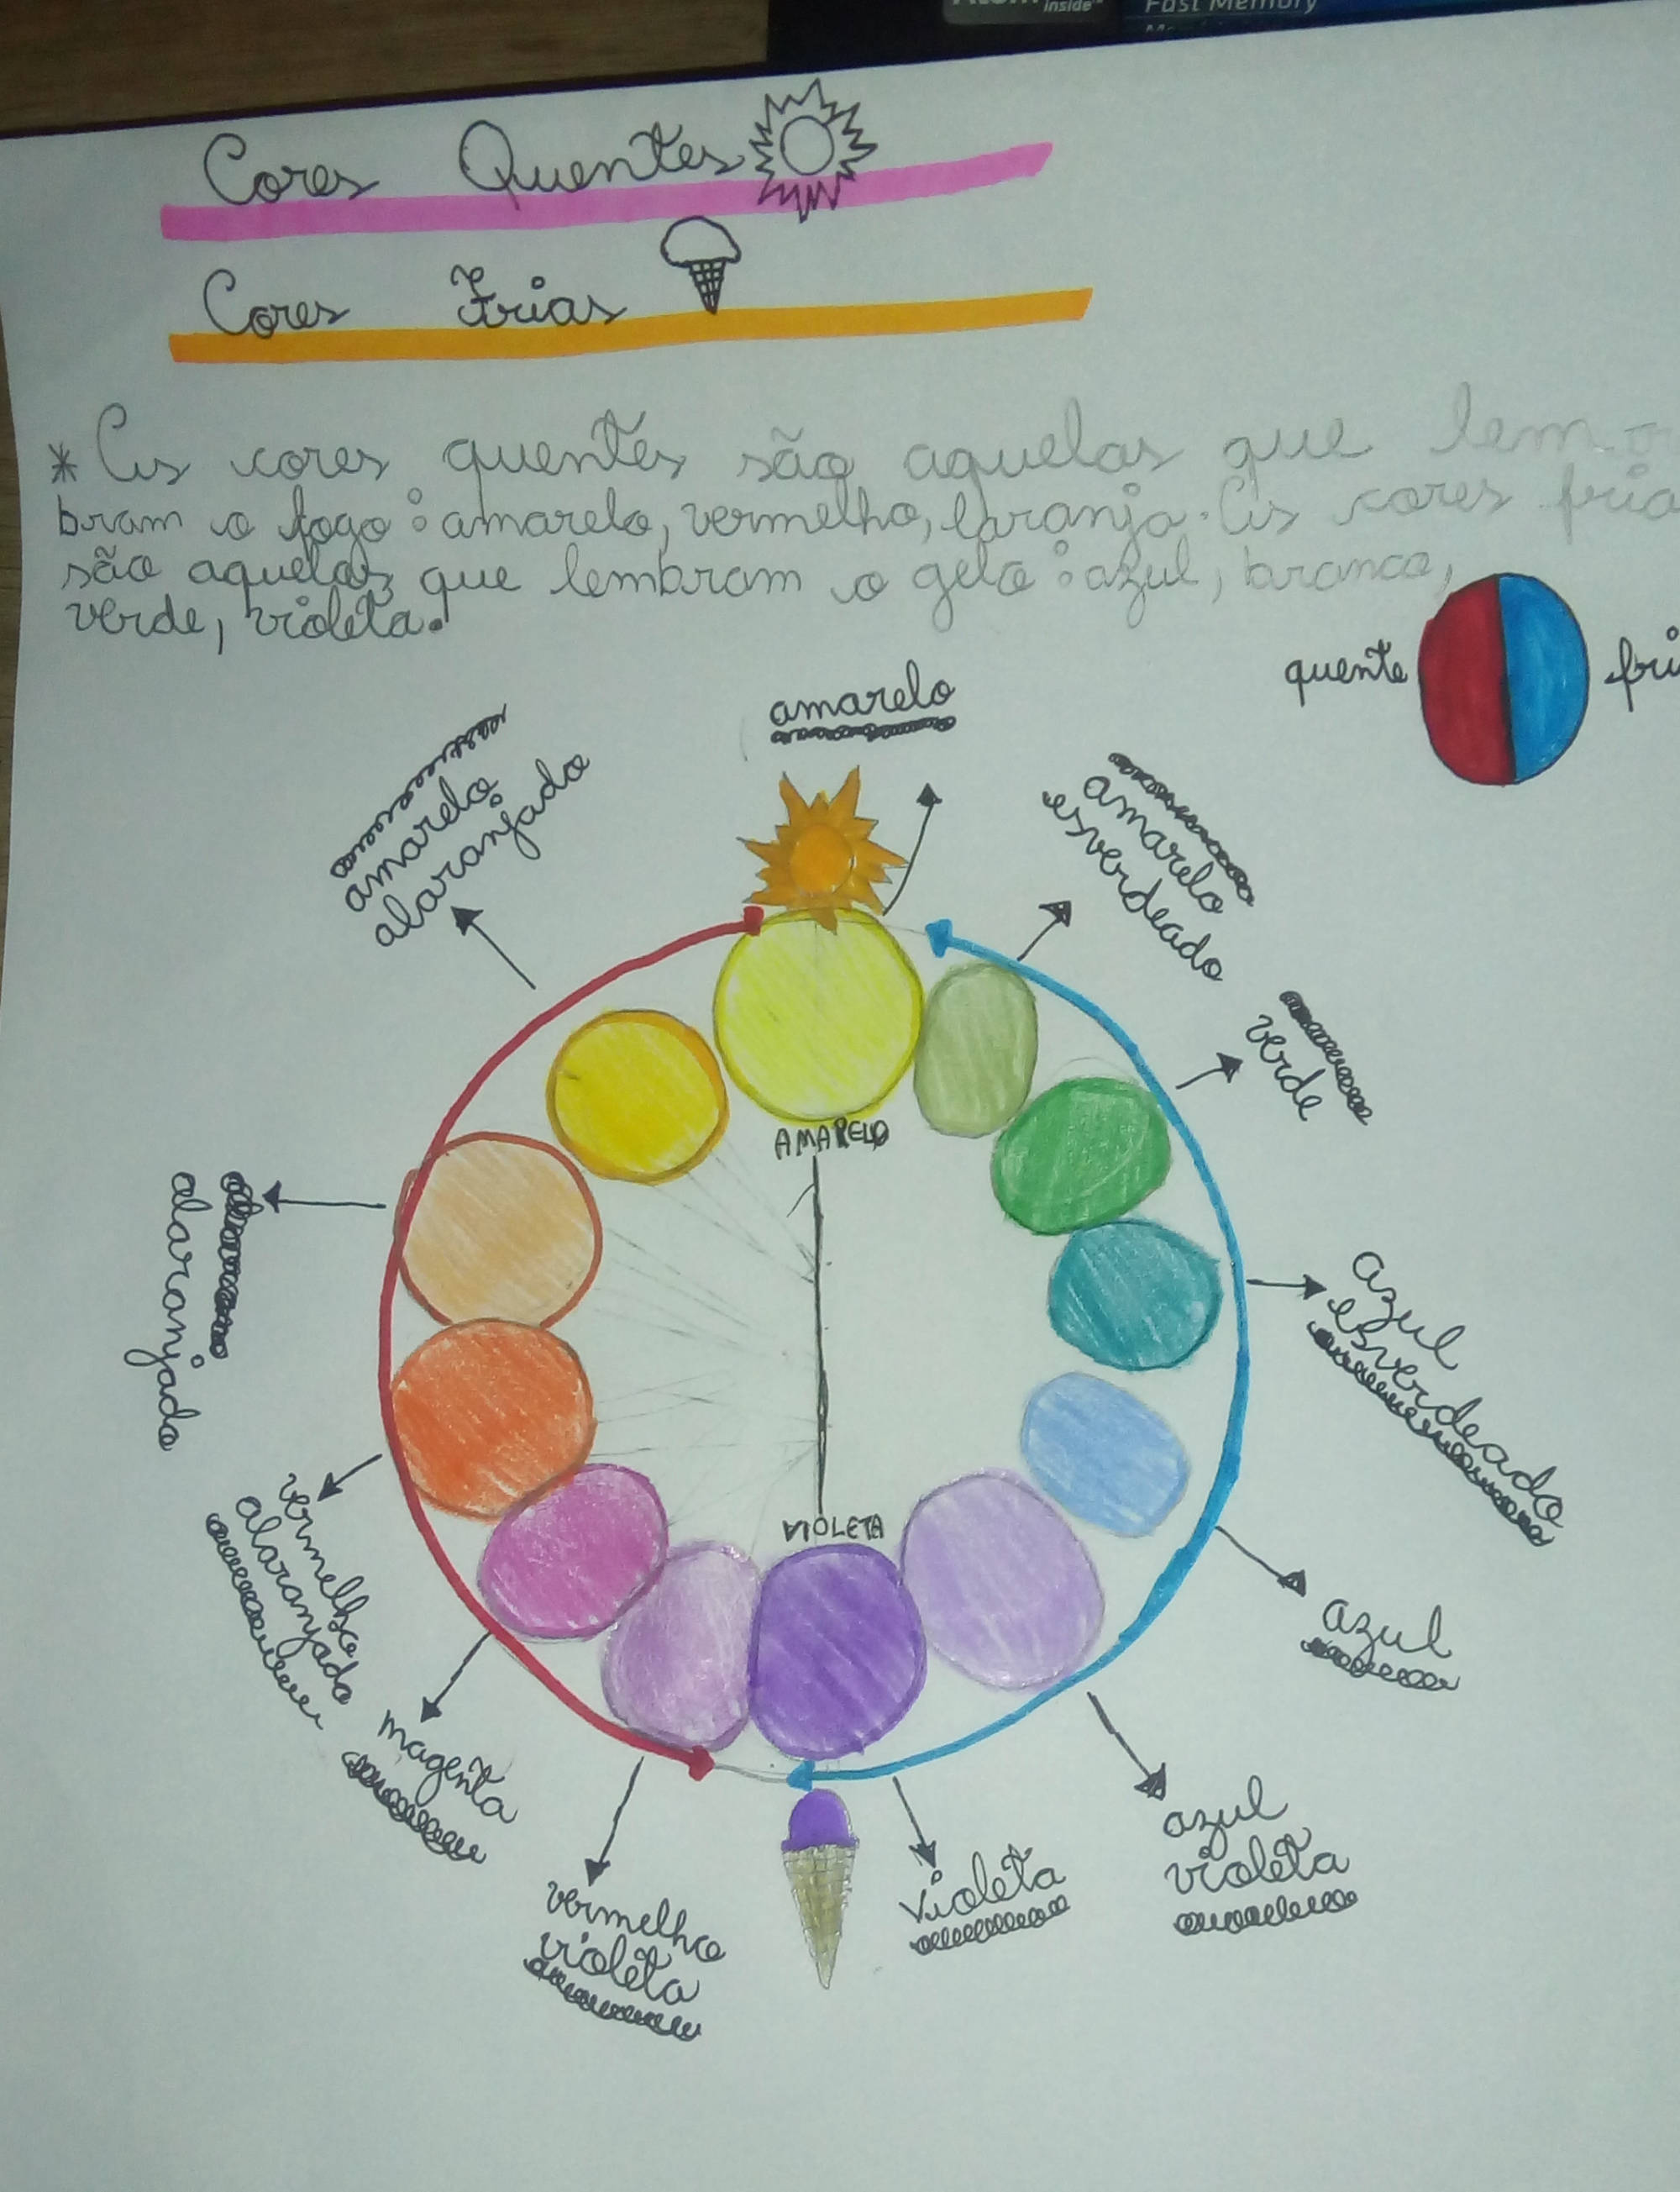 inside
Fast Memory
Cores Quentes
Cores Frias
* As cores quentes são aquelas que lem
bram o fogo: amarelo, vermelho, laranja. As cores fria
são aquelas que lembram o gelo: azul, branco,
verde, violeta.
quente fri
amarelo
amarelo
alaranjado
amarelo
esverdeado
verde
AMARELO
alaranjado
azul
esverdeado
vermelho
alaranjado
VIOLETA
azul
magenta
azul
violeta
vermelho
violeta
violeta